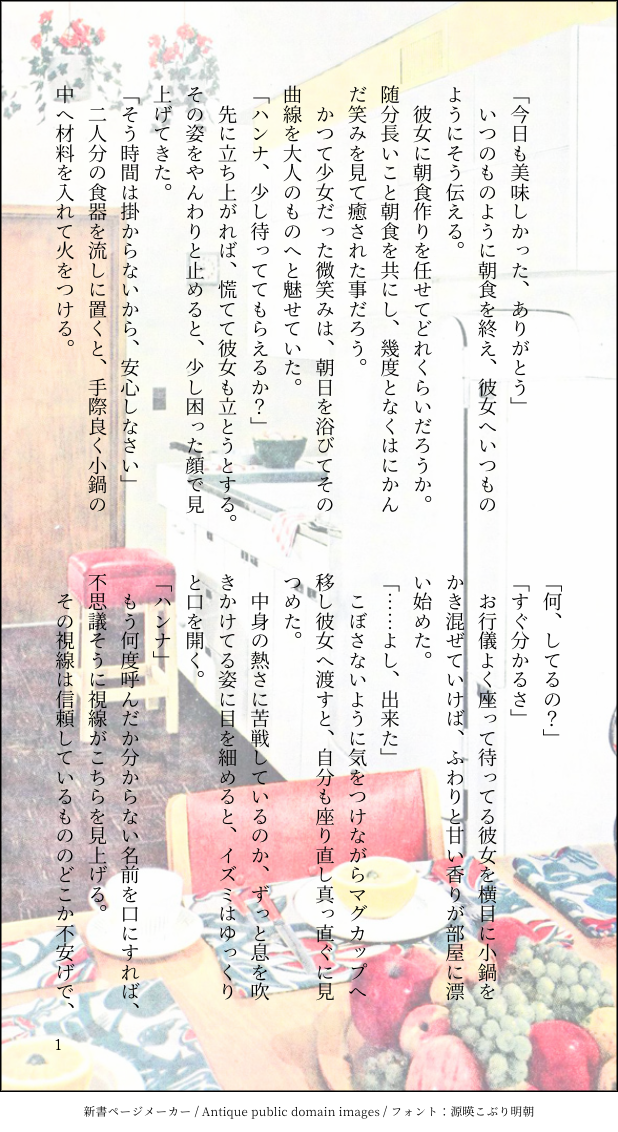 「今日も美味しかった、ありがとう」
いつのものように朝食を終え、彼女へいつもの
ようにそう伝える。
彼女に朝食作りを任せてどれくらいだろうか。
随分長いこと朝食を共にし、幾度となくはにかん
だ笑みを見て癒された事だろう。
かつて少女だった微笑みは、朝日を浴びてその
曲線を大人のものへと魅せていた。
「ハンナ、少し待っててもらえるか？」
先に立ち上がれば、慌てて彼女も立とうとする。
その姿をやんわりと止めると、少し困った顔で見
上げてきた。
「そう時間は掛からないから、安心しなさい」
二人分の食器を流しに置くと、手際良く小鍋の
中へ材料を入れて火をつける。
「何、してるの？」
「すぐ分かるさ」
お行儀よく座って待ってる彼女を横目に小鍋を
かき混ぜていけば、ふわりと甘い香りが部屋に漂
い始めた。
「……よし、出来た」
こぼさないように気をつけながらマグカップへ
移し彼女へ渡すと、自分も座り直し真っ直ぐに見
つめた。
中身の熱さに苦戦しているのか、ずっと息を吹
きかけてる姿に目を細めると、イズミはゆっくり
と口を開く。
「ハンナ」
もう何度呼んだか分からない名前を口にすれば、
不思議そうに視線がこちらを見上げる。
その視線は信頼しているもののどこか不安げで、
1
新書ページメーカー / Antique public domain images / フォント：源暎こぶり明朝